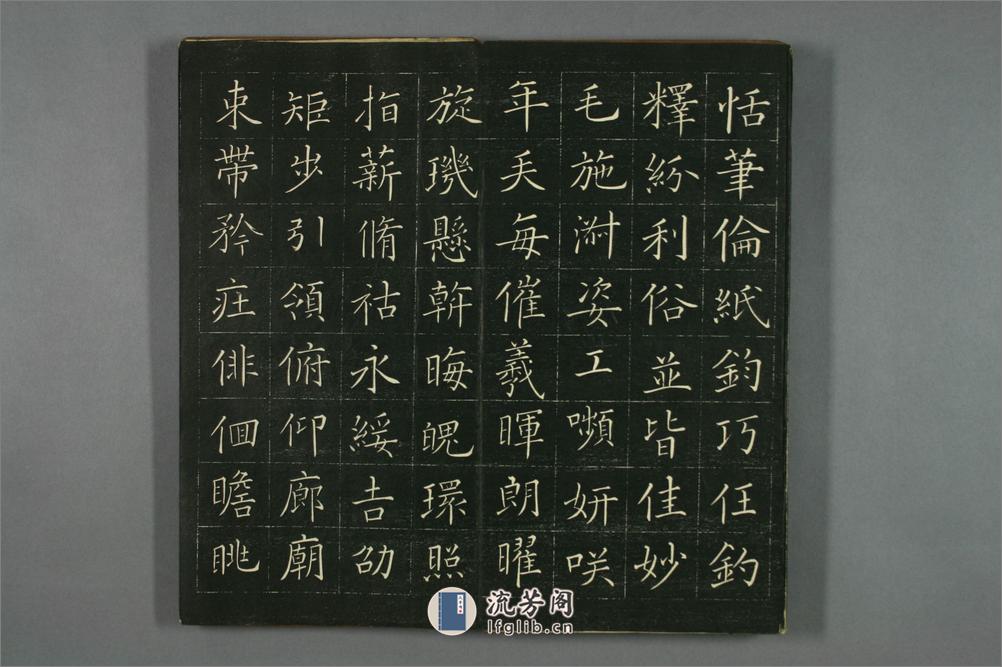 恬筆倫紙鈞巧任釣
釋紛利俗並皆佳妙
毛施淑姿工嚬妍咲
年矢每催羲暉朗曜
旋璣懸斡晦魄環照
指薪脩祜永綏吉劭
矩步引領俯仰廊廟
束帶矜莊俳佪瞻眺
流芳阁
lfglib.cn